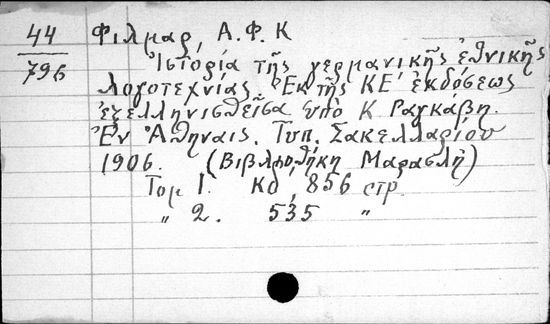 44
796
Φιλμαρ, Α. Φ. Κ
Ἱστορία τῆς γερμανικῆς ἐθνικῆς
λογοτεχνίας. Ἐκ τῆς ΚΕ΄ ἐκδόσεως
ἐξελληνισθεῖσα ὑπὸ Κ. Ραγκάβη.
Ἐν Ἀθήναις. Τυπ. Σακελλαρίου
1906. (Βιβλιοθήκη Μαρασλῆ)
Τομ 1. Κδ, 856 στρ.
„ 2. 535 „